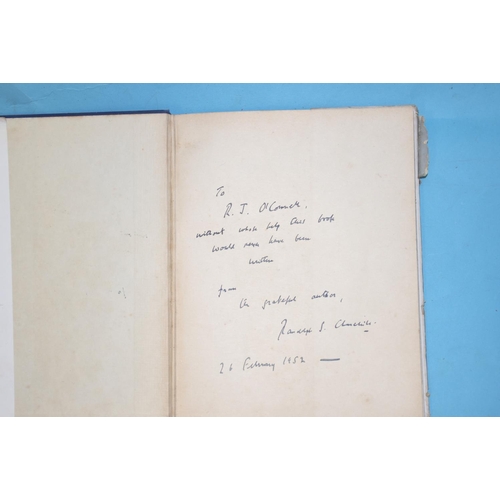 To
R. J. O'Connell.
without whose help this book
would never have been
written
from
the grateful author,
Randolph S. Churchill.
26 February 1952